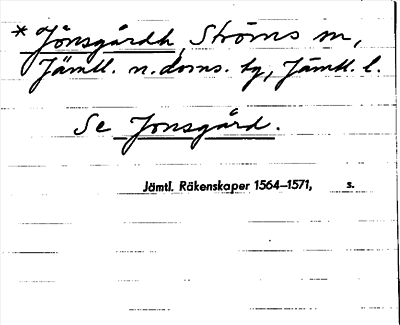 * Jönsgårdh, Ströms sn,
Jämtl. n. doms. tg, Jämtl. l.
Se Jonsgård.
Jämtl. Räkenskaper 1564–1571, s.